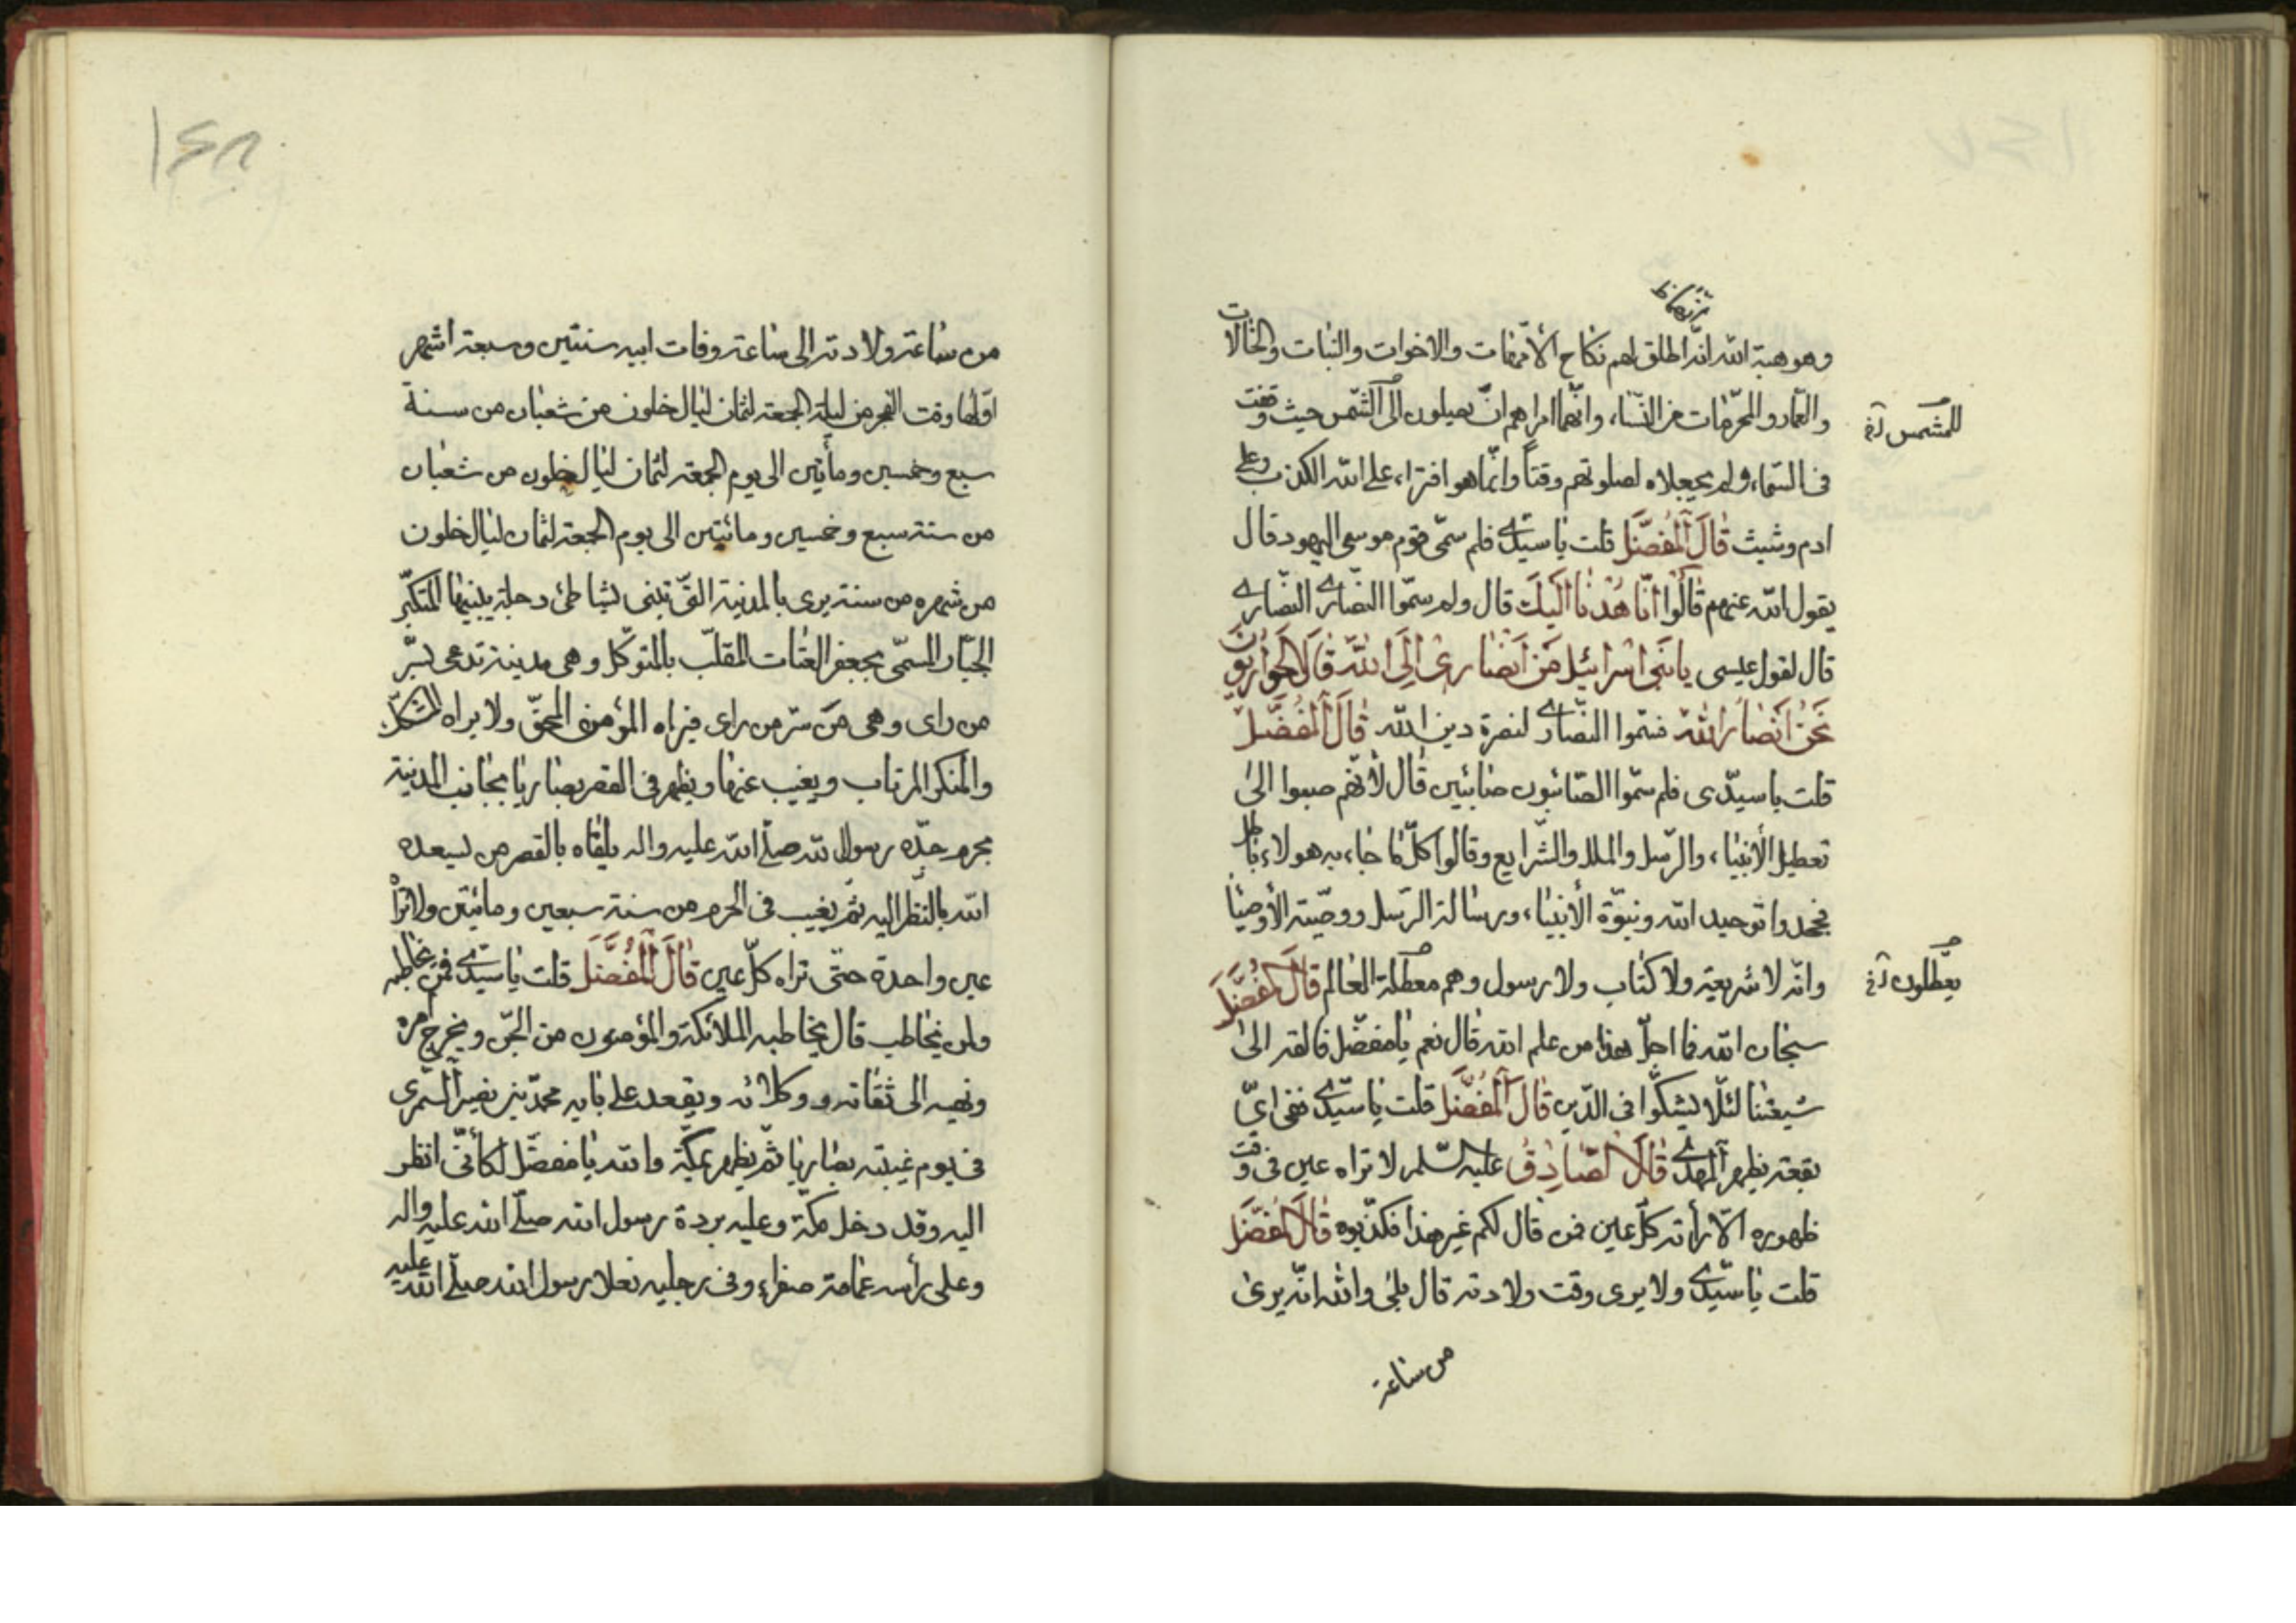 وهو هبة الله انّه اطلق لهم نكاح الأمّهات والاخوات والبنات والخالات
والعمّات والمحرّمات من النّساء، وانّهما امراهم انّ يصلون الى الشّمس حيث وقفت
للشمس
فى السّماء ولم يجعلاه لصلوتهم وقتاً وانّما هو افتراء، على الله الكذب وعلى
ادم وشيث قَالَ الْمُفَضَّل قلت يا سيّدى فلم سمّى قوم موسى اليهود قال
يقول الله عنهم قَالُوا انَّا هُدْنَا اِلَيكَ قال ولم سمّوا النّصارى النّصارى
قال لقول عيسى يا بَنى اسْرائيل مَنْ اَنْصَارى اِلَى اللّه قَالَ الحَوارِيّونَ
نَحْنُ اَنْصَارُ الله فسمّوا النصّارى لنصرة دين الله قَالَ الْمُفَضَّل
قلت يا سيّدى فلم سمّوا الصّائبون صابئين قال لأنّهم صبوا الى
تعطيل الأنبياء، والرّسل والملل والشّرايع وقالوا كلّ ما جاء، به هولاء باطل
فجحدوا توحيد الله ونبوّة الأنبياء، ورسالة الرّسل ووصيّة الأوصيا
وانّه لا شريعة ولا كتاب ولا رسول وهم معطلة العالم قَالَ المُفَضَّل
يعطّلون
سبحان الله فما اجلّ هذا من علم الله قال نعم يا مفضّل فالقه الى
شيعتنا لئلّا يشكّوا فى الدّين قَالَ الْمُفَضَّل قلت يا سيّدى ففى اىّ
بقعة يظهر المهدى قَالَ الصّادِقُ عليه السّلم لا تراه عين فى وقت
ظهوره الّا رأته كلّ عين فمن قال لكم غير هذا فكذّبوه قَالَ المُفَضَّل
قلت يا سيّدى ولا يرى وقت ولادته قال بلى والله انّه يرى
من ساعة
من ساعة ولادته الى ساعة وفات ابيه سنتين وسبعة اشهر
اوّلها وقت الفجر من ليلة الجمعة لثمان ليال خلون من شعبان من سنة
سبع وخمسين ومأتين الى يوم الجمعة لثمان ليال خلون من شعبان
من سنة سبع وخمسين ومائتين الى يوم الجمعة لثمان ليال خلون
من شهره من سنة يرى بالمدينة الّتى تبنى بشاطئ دجلة يبنيها المتكبّر
الجبّار المسمّى بجعفر العتات المقلّب بالمتوكّل وهى مدينة تدعى بسرّ
من راى وهى من سرّ من راى فيراه المؤمن المحقّ ولا يراه
والمنكر المرتاب ويغيب عنها ويظهر فى القصر بصاريا بجانب المدينة
بحرم جدّه رسول الله صلّى الله عليه واله يلقاه بالقصر من يسعده
الله بالنّظر اليه ثمّ يغيب فى الحرم من سنة سبعين ومائتين ولا تراه
عين واحدة حتّى تراه كلّ عين قَالَ الْمُفَضَّل قلت يا سيّدى فمن يخاطبه
ولمن يخاطب قال يخاطبه الملائكة والمؤمنون من الجنّ ويخرج امره
ونهيه الى ثقاته ووكلائه ويقعد على بابه محمّد بن نصير النّميرى
فى يوم غيبته بصاريا ثمّ يظهر بمكّة والله يا مفضّل لكأنّى انظر
اليه وقد دخل مكّة وعليه بردة رسول الله صلّى الله عليه واله
وعلى رأسه عمامة صفراء، وفى رجليه نعلا رسول الله صلّى الله عليه